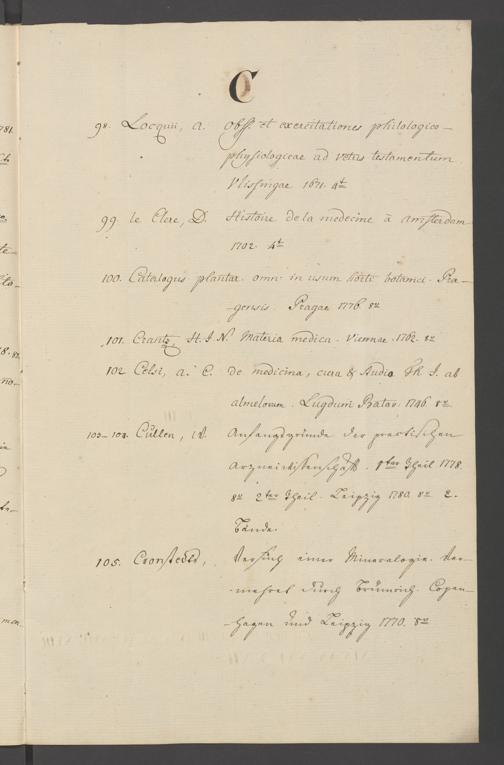 C
98. Cocquii, A. obss. et exercitationes philologico-
physiologicae ad vetus testamentum.
Vlissingae 1671. 4to
99. le Clerc, D. Histoire de la medecine à amsterdam
1702. 4t
100. Catalogus plantar. omn. in usum horti botanici Pra-
-gensis. Pragae 1776. 8v
101. Crantz, H. I. N. Materia medica. Viennae. 1762. 8v
102. Celsi, A. C. de medicina, cura & studio Th. I. ab
almeloveen. Lugdum Batav. 1746. 8v
103-104. Cullen, W. Anfangsgründe der practischen
Arzneiwissenschaft. 1ter Theil 1778.
8v 2ter Theil. Leipzig 1780. 8v 2.
Bände.
105. Cronstedt, Versuch einer Mineralogie. Ver-
-mehret durch Brünnich. Copen-
-hagen und Leipzig 1770. 8v